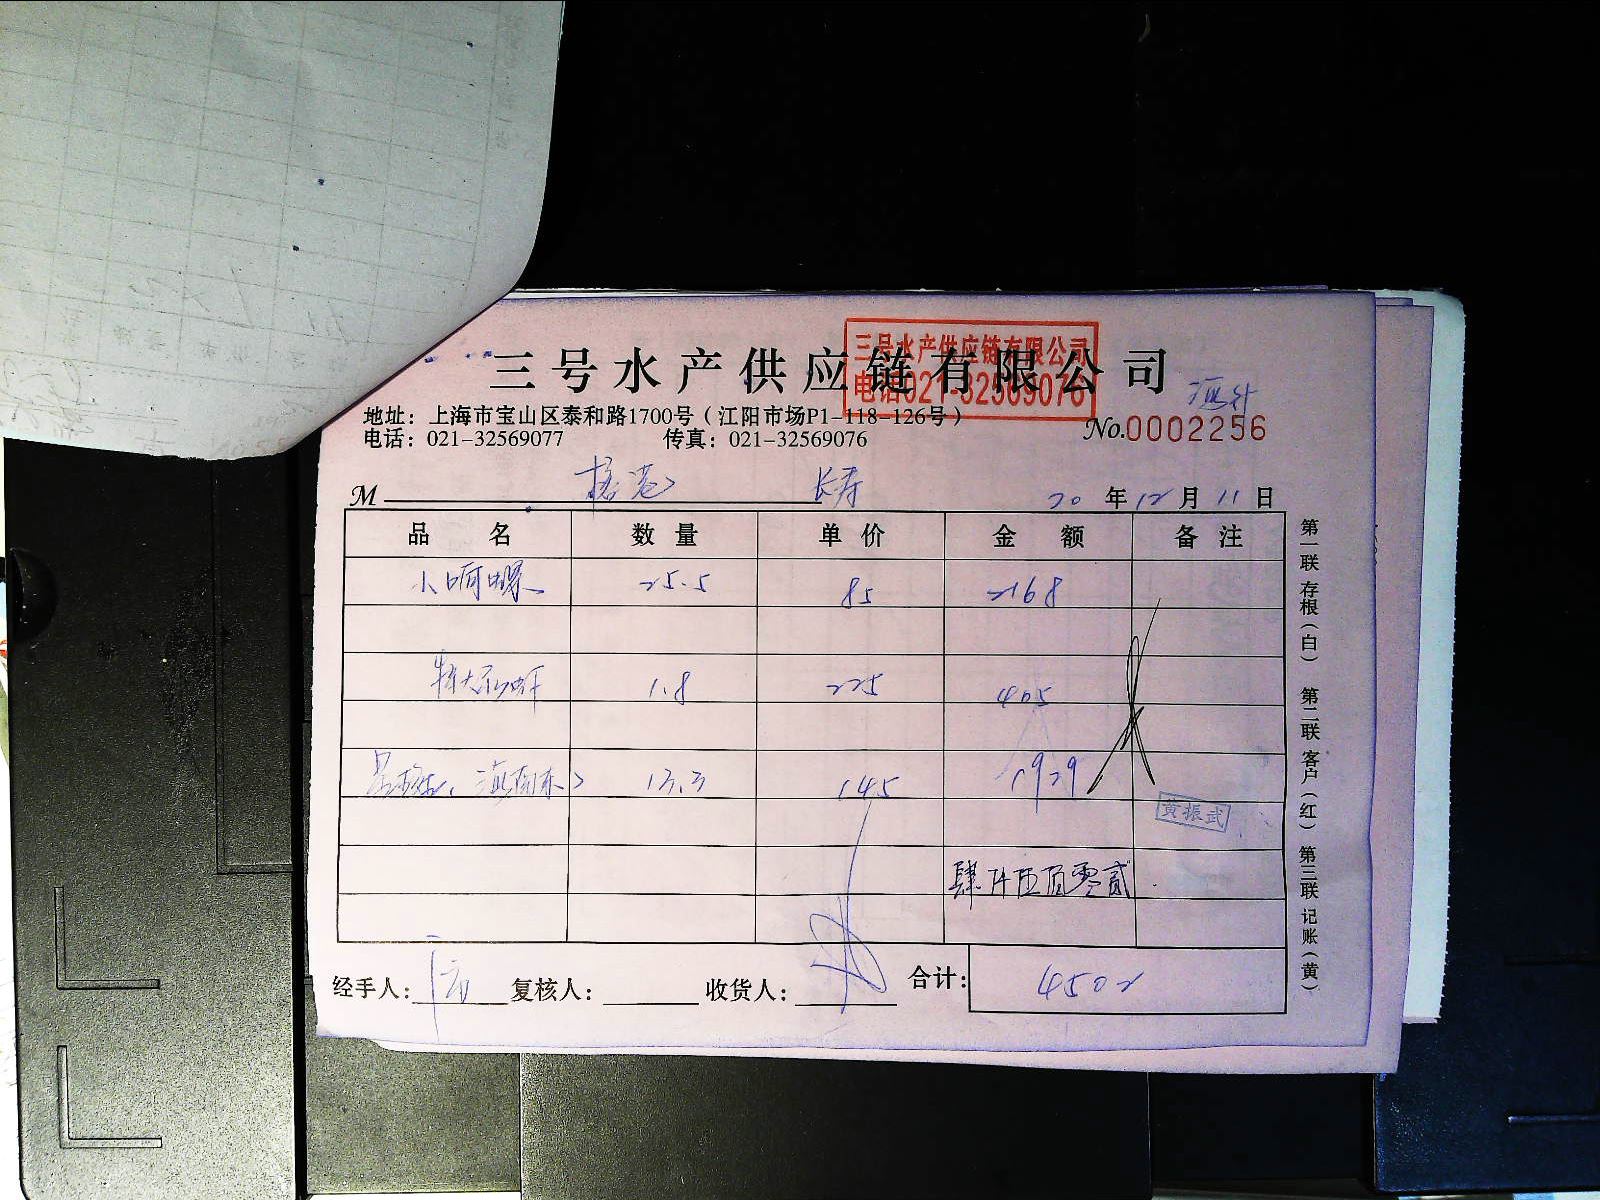 三号水产供应链有限公司
三号水产供应链有限公司
电话021-32569076
地址：上海市宝山区泰和路1700号（江阳市场P1-118-126号）
电话：021-32569077 传真：021-32569076
No.0002256
M 长寿 20年12月11日
品名 数量 单价 金额 备注
小响螺 25.5 85 2168
特大 虾 1.8 225 405
13.3 145 1929
黄振武
肆仟伍佰零贰
经手人： 复核人： 收货人： 合计： 4502
第一联 存根（白） 第二联 客户（红） 第三联 记账（黄）